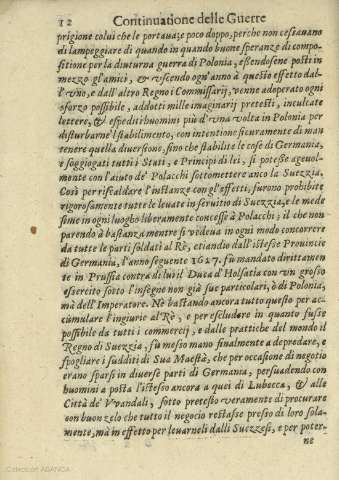 12 Continuatione delle Guerre
prigione colui che le portaua; e poco doppo, perche non cessauano
di lampeggiare di quando in quando buone speranze di compo-
sitione per la diuturna guerra di Polonia, essendosene posti in
mezzo gl'amici, & vscendo ogn'anno à questo effetto dall'
vno, e dall'altro Regno i Commissarij, venne adoperato ogni
sforzo possibile, addotti mille imaginarij pretesti, inculcate
lettere, & espediti huomini più d'vna volta in Polonia per
disturbarne l'stabilimento, con intentione sicuramente di man
tenere quella diuersione, sino che stabilite le cose di Germania,
e soggiogati tutti i Stati, e Principi di lei, si potesse ageuol-
mente con l'aiuto de' Polacchi sottomettere anco la Suezzia.
Così per rifcaldare l'instanze con gl'effetti, furono prohibite
rigorosamente tutte le leuate in seruitio di Suezzia, e le mede
sime in ogni luogho liberamente concesse à Polacchi; il che non
parendo à bastanza mentre si vedeua in ogni modo concorrere
da tutte le parti soldati al Rè, etiandio dall'istesse Prouincie
di Germania, l'anno seguente 1627. fù mandato dirittamen
te in Prussia contra di lui il Duca d'Holsatia con vn grosso
essercito sotto l'insegne non già sue particolari, ò di Polonia,
mà dell'Imperatore. Nè bastando ancora tutto questo per ac
cumulare l'ingiurie al Rè, e per escludere in quanto fusse
possibile da tutti i commercij, e dalle prattiche del mondo il
Regno di Suezzia, fù messo mano finalmente a depredare, e
spogliare i sudditi di Sua Maestà, che per occasione di negotio
erano sparsi in diuerse parti di Germania, persuadendo con
huomini a posta l'istesso ancora a quei di Lubecca, & alle
Città de' Vvandali, sotto pretesto veramente di procurare
con buon zelo che tutto il negocio restasse presso di loro sola-
mente, mà in effetto per leuarneli dalli Suezzesi, e per poter-
ne